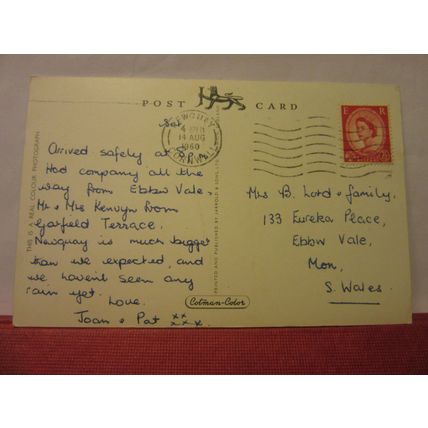 POST CARD
Sat
NEWQUAY
CORNWALL
14 AUG
1960
E R
Arrived safely at 5 P.m.
Had company all the
way from Ebbw Vale.
Mr & Mrs Kenvyn from
Garfield Terrace.
Newquay is much bigger
than we expected, and
we haven't seen any
rain yet.
Love
Joan & Pat xx
xxx
Mrs B. Lord & family,
133 Eureka Place,
Ebbw Vale,
Mon,
S. Wales
THIS IS A REAL COLOUR PHOTOGRAPH
PRINTED AND PUBLISHED BY JARROLD & SONS
Colman-Color